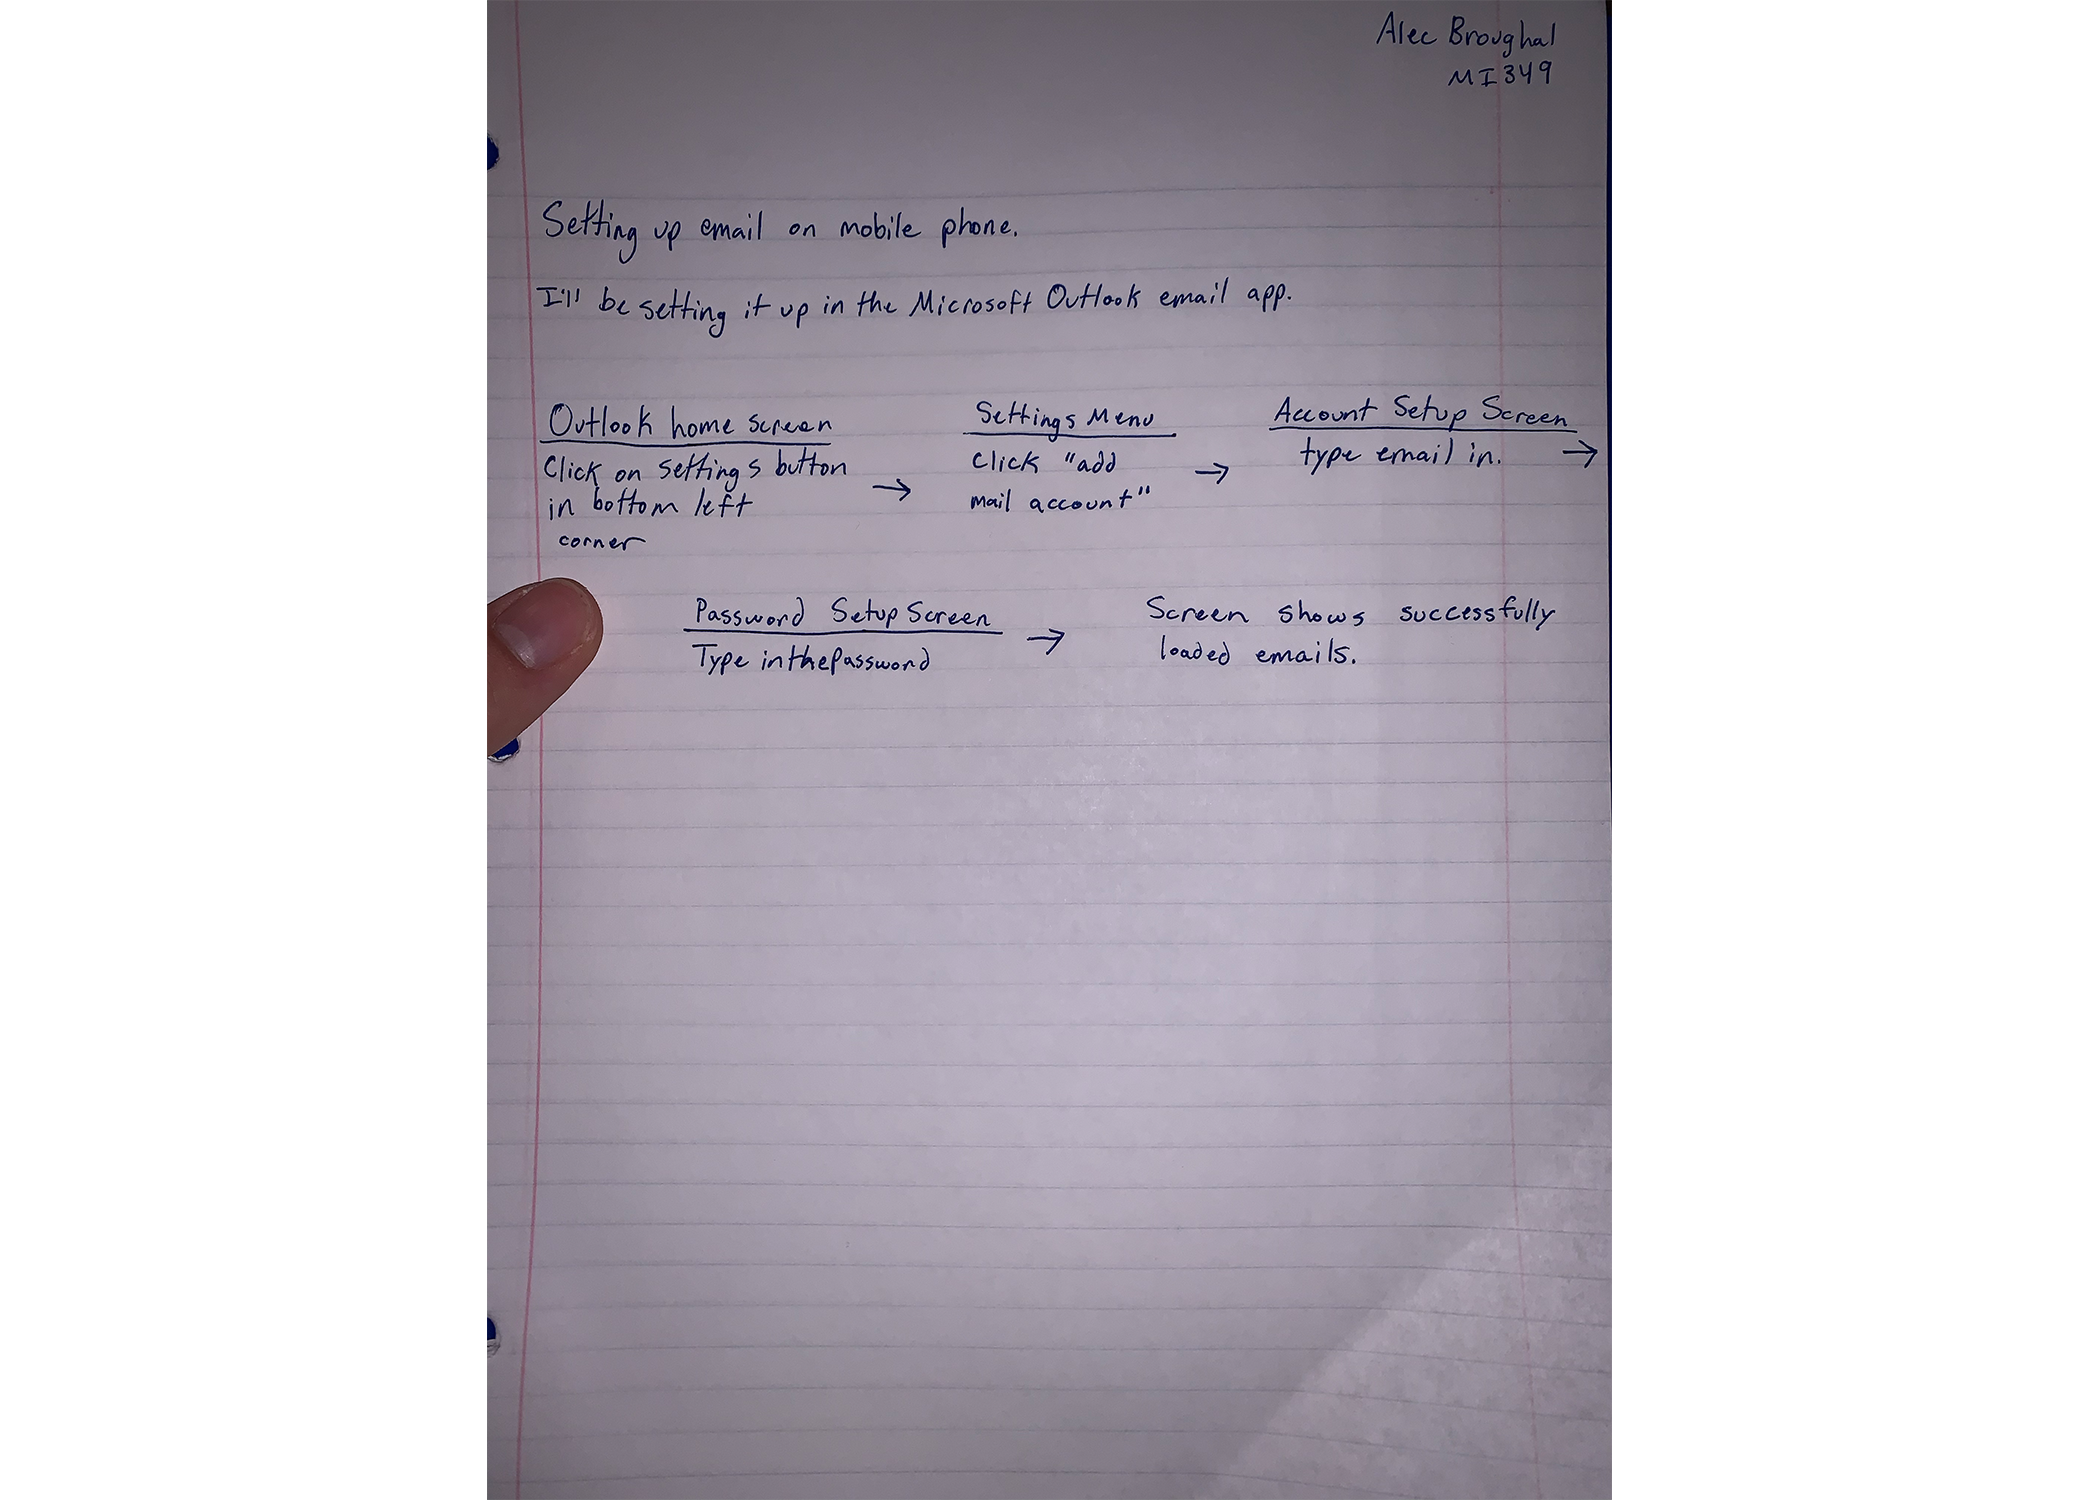 Alec Broughal
MI349
Setting up email on mobile phone.
I'll be setting it up in the Microsoft Outlook email app.
Outlook home screen
Click on settings button
in bottom left
corner
→
Settings Menu
Click "add
mail account"
→
Account Setup Screen
type email in.
→
Password Setup Screen
Type in the Password
→
Screen shows successfully
loaded emails.